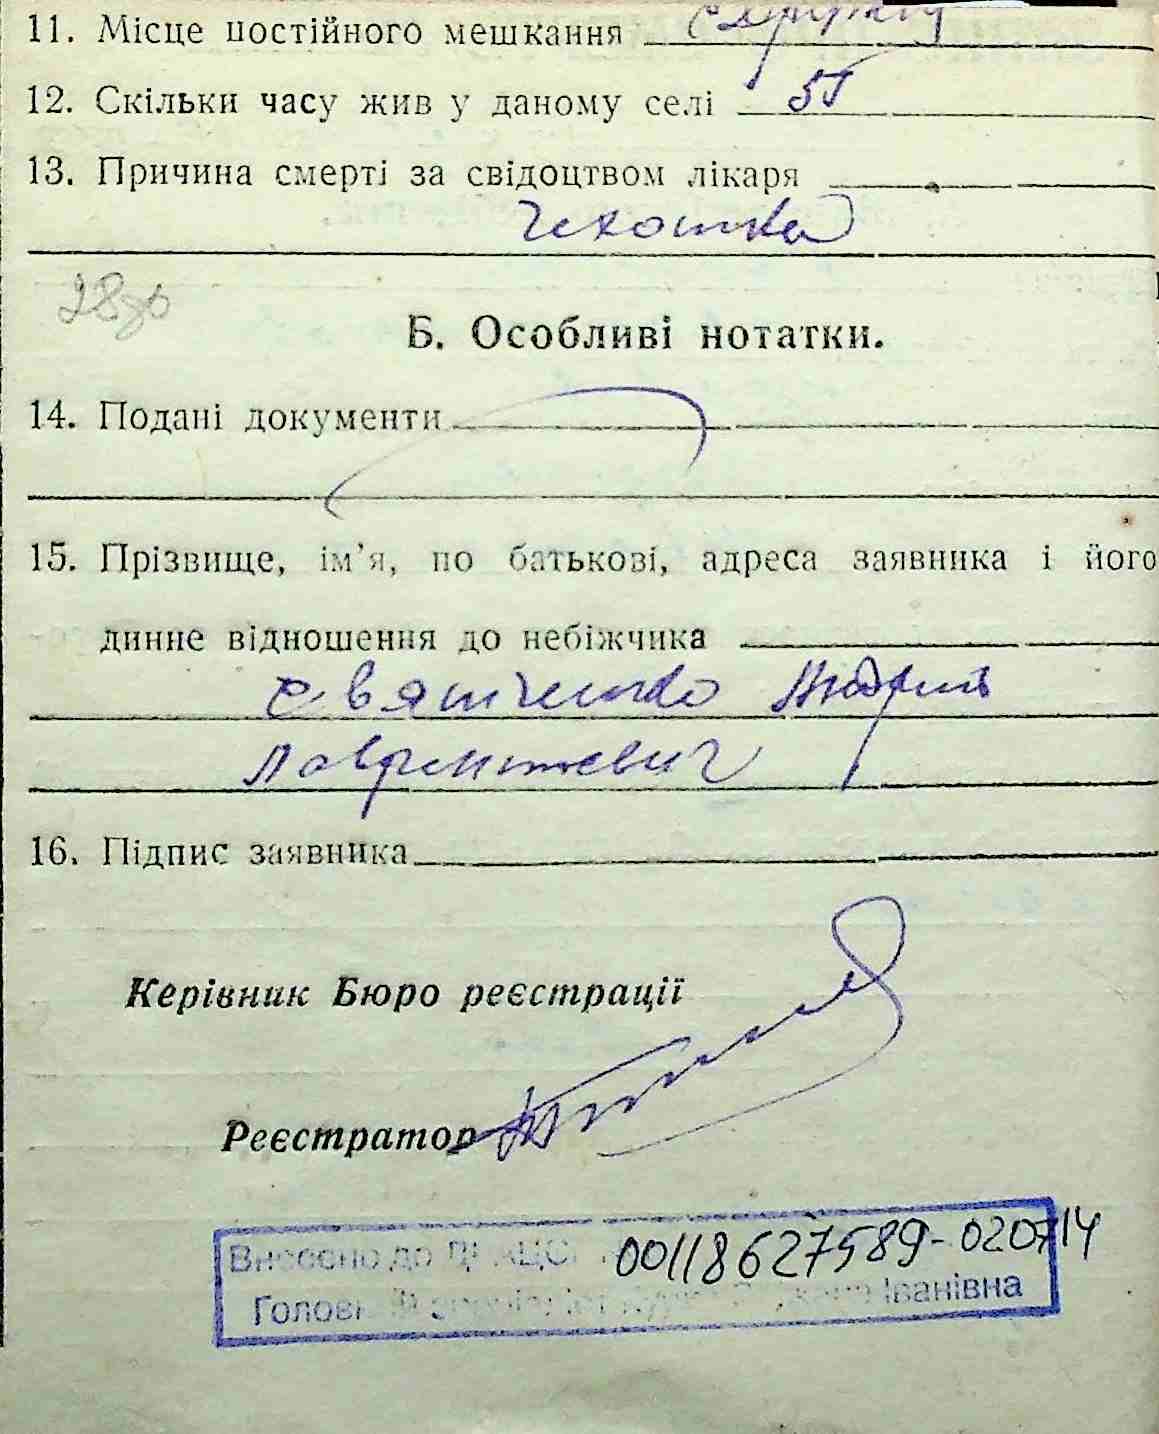 11. Місце постійного мешкання
12. Скільки часу жив у даному селі 5г
13. Причина смерті за свідоцтвом лікаря
чехотка
Б. Особливі нотатки.
14. Подані документи
15. Прізвище, ім’я, по батькові, адреса заявника і його
динне відношення до небіжчика
Святченко Андрий
Лаврентевич
16. Підпис заявника
Керівник Бюро реєстрації
Реєстратор
Внесено до ДРАЦС 00118627589-020714
Іванівна